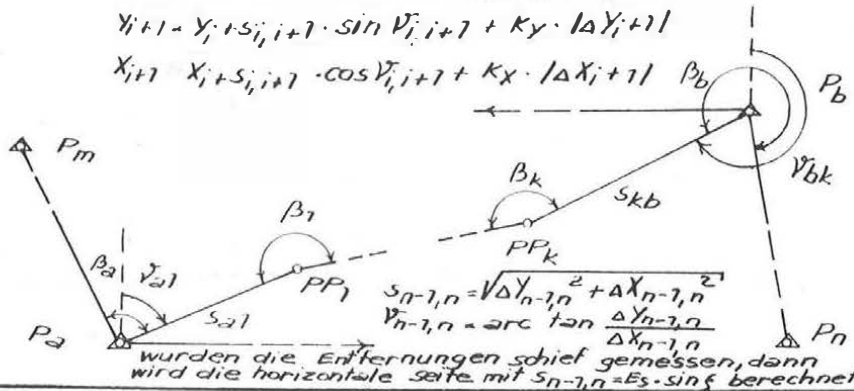 Y_{i+1} = Y_i + s_{i,i+1} · sin ν_{i,i+1} + K_Y · |ΔY_{i+1}|
X_{i+1} X_i + s_{i,i+1} · cos ν_{i,i+1} + K_X · |ΔX_{i+1}|
β_b
P_b
P_m
ν_{bk}
β_k
s_{kb}
β_1
β_a
ν_{a1}
PP_k
PP_1
s_{n-1,n} = √ΔY_{n-1,n}² + ΔX_{n-1,n}²
s_{a1}
ν_{n-1,n} = arc tan ΔY_{n-1,n} / ΔX_{n-1,n}
P_a
P_n
wurden die Entfernungen schief gemessen, dann
wird die horizontale Seite mit s_{n-1,n} = E_s · sin ζ berechnet